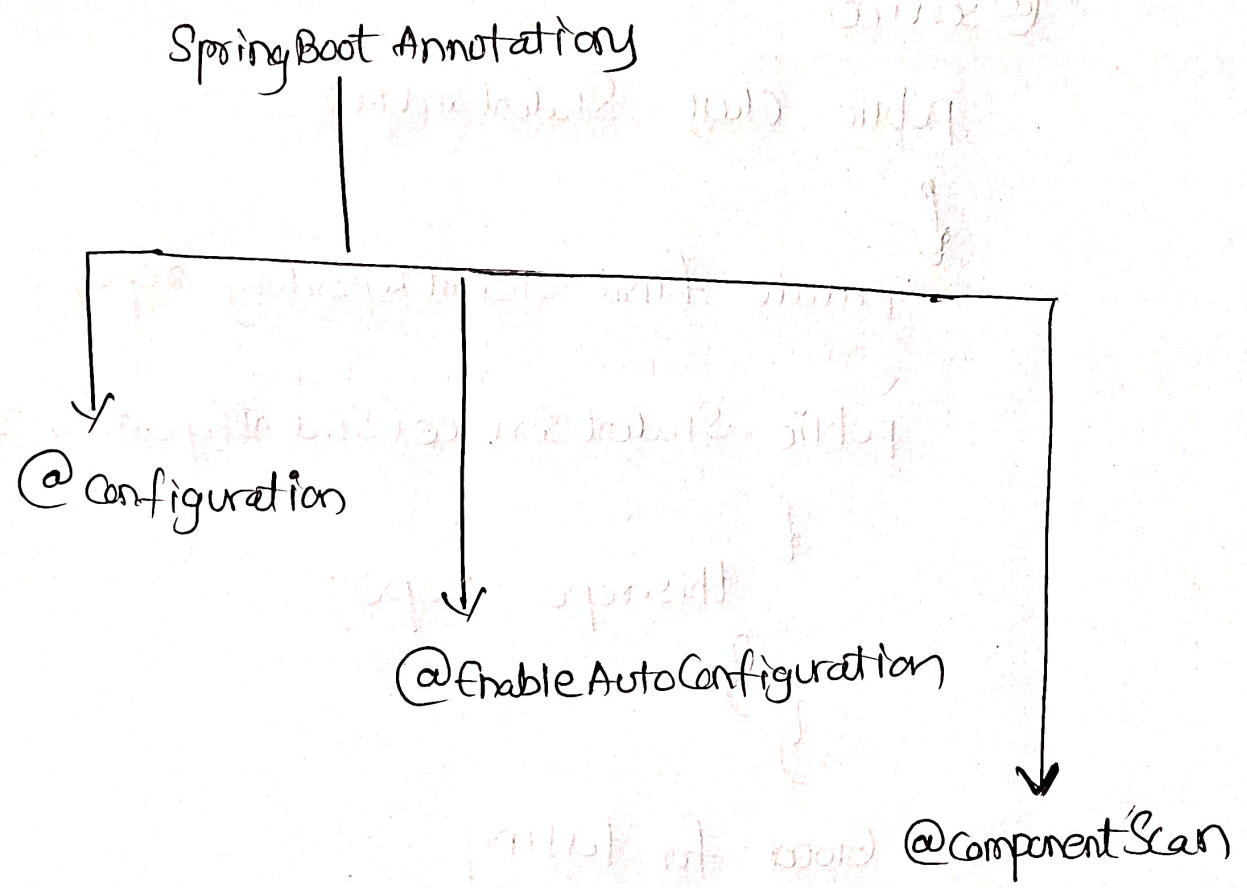 SpringBoot Annotations
@ Configuration
@EnableAutoConfiguration
@ComponentScan